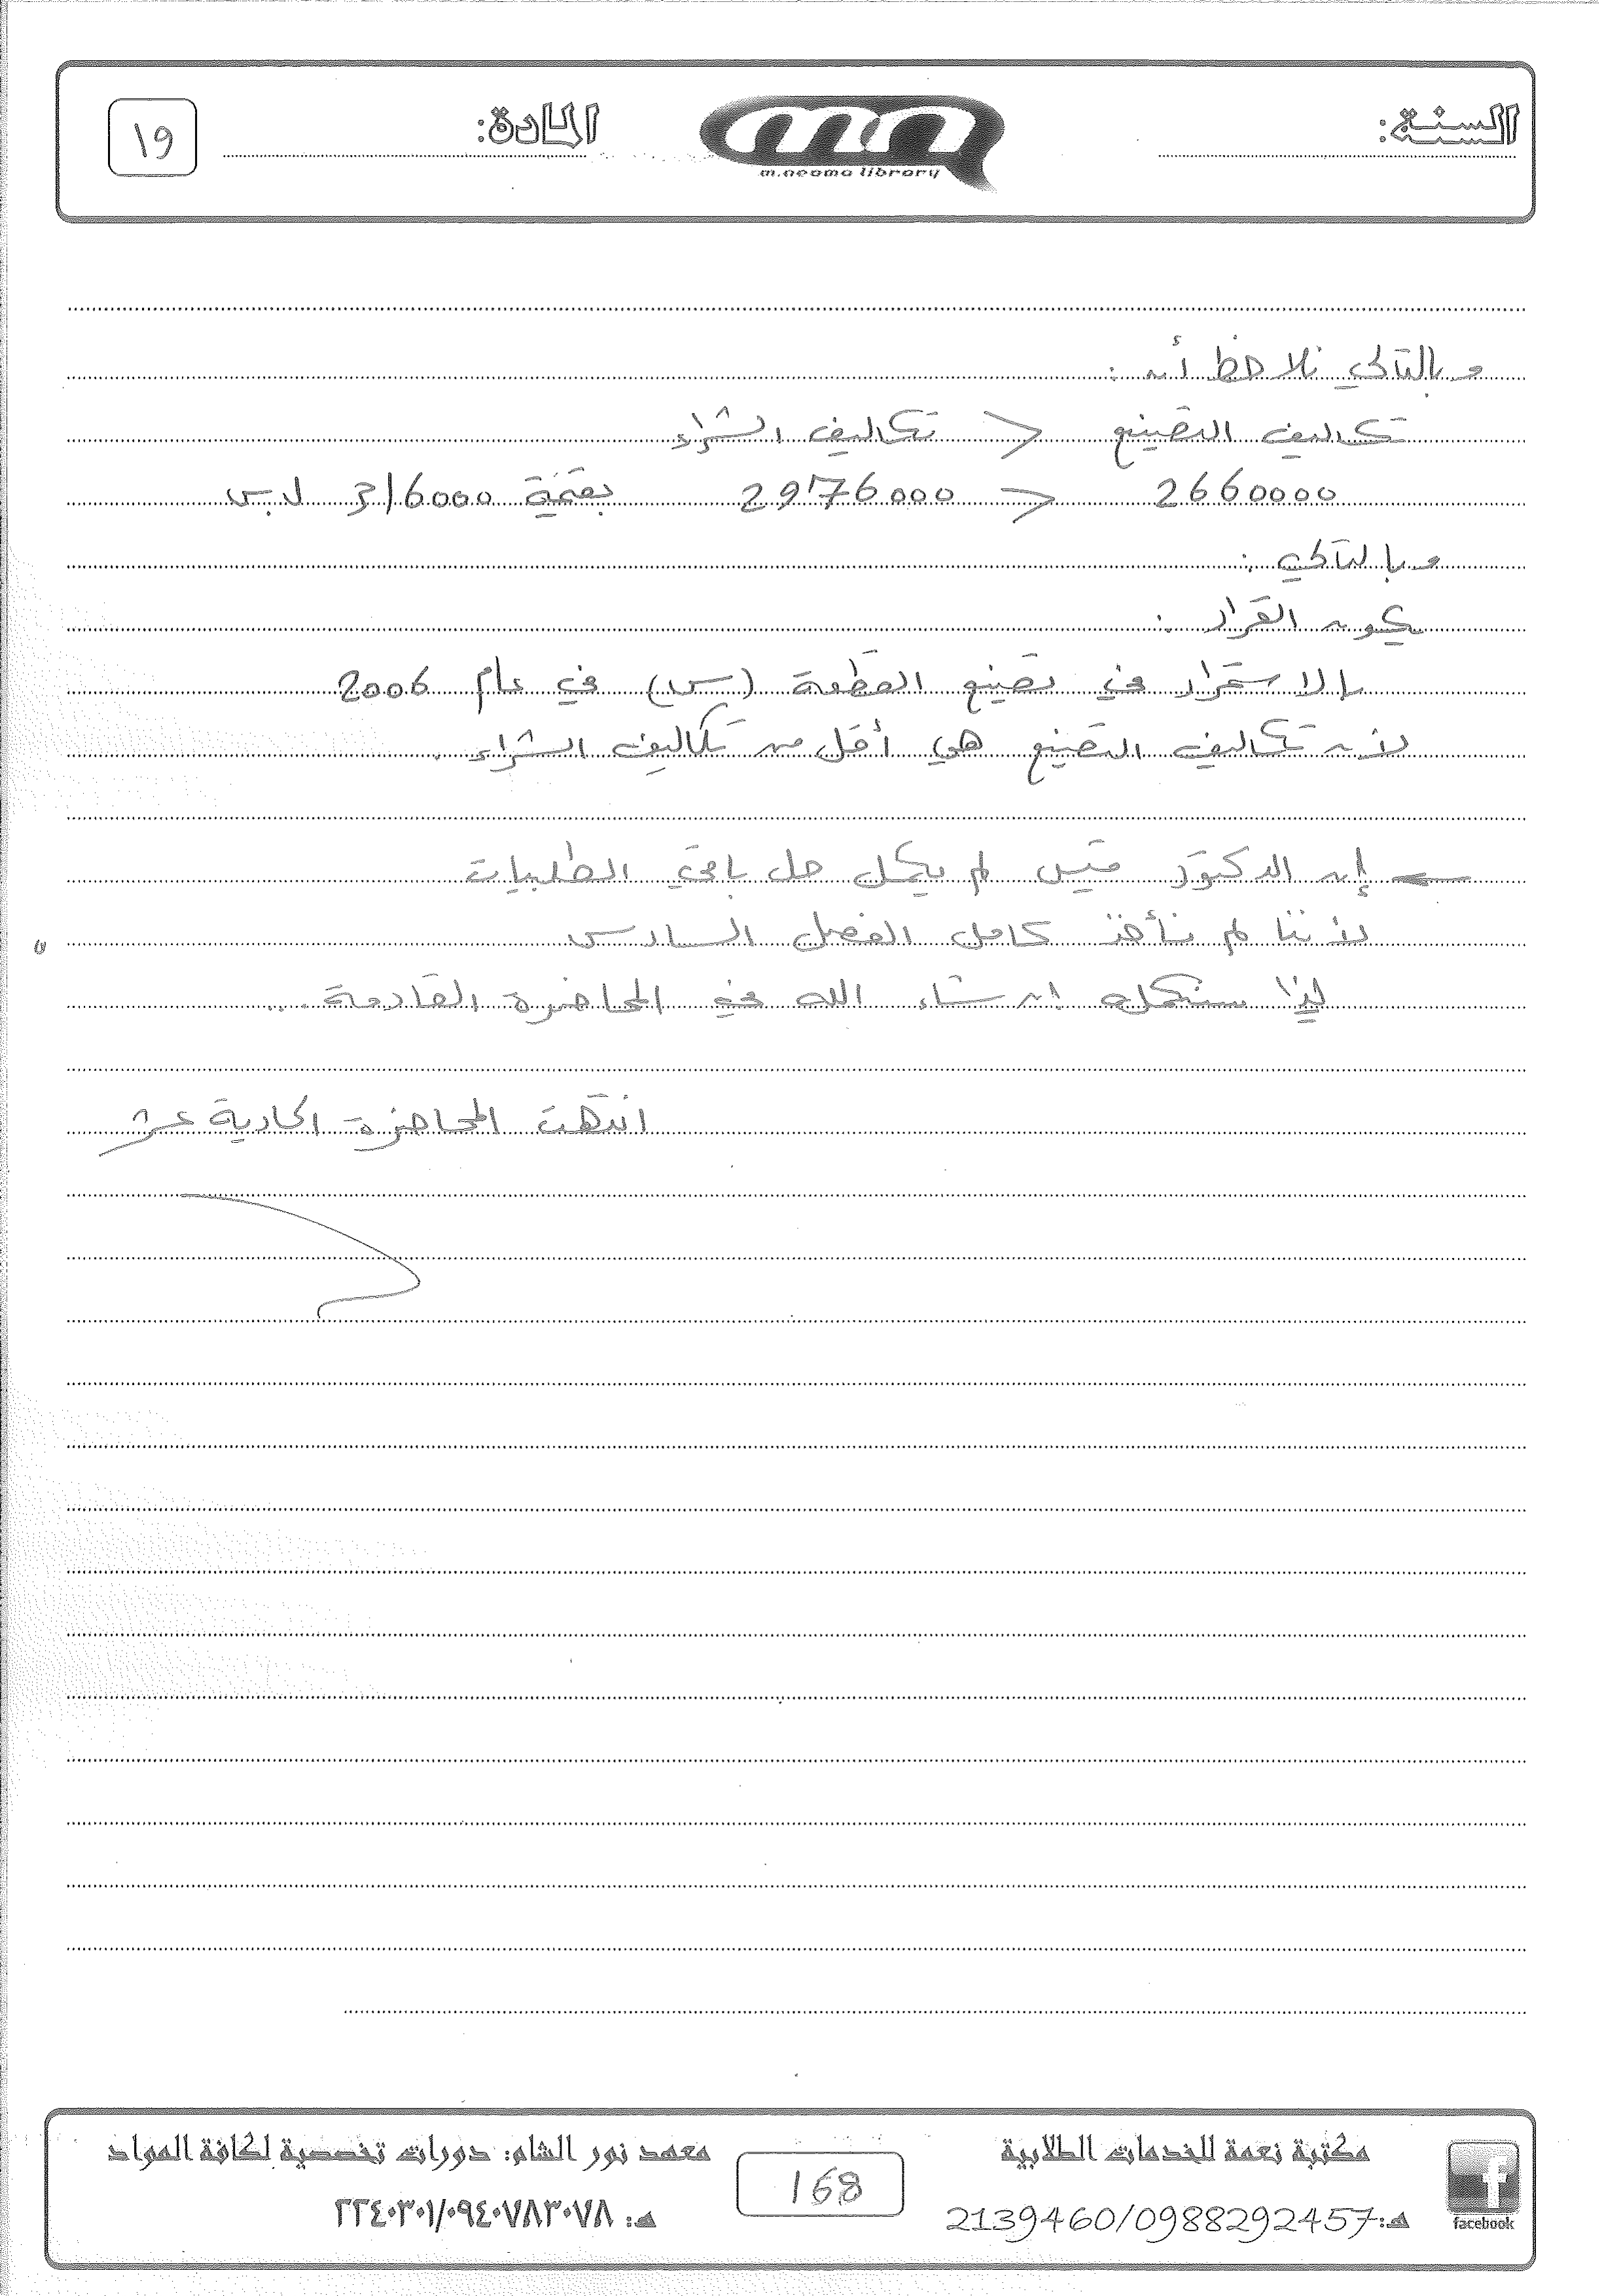 السنة:
m.neama library
المادة:
١٩
وبالتالي نلاحظ أن :
تكاليف التصنيع > تكاليف الشراء
2660000 > 2976000 بقيمة 316000 ل.س
وبالتالي :
يكون القرار :
بالاستمرار في تصنيع القطعة (س) في عام 2006
لأن تكاليف التصنيع هي أقل من تكاليف الشراء .
← إن الدكتور لم يكمل حل باقي الطلبات
لأننا لم نأخذ كامل الفصل السادس
لذا سنكمله إن شاء الله في المحاضرة القادمة ...
انتهت المحاضرة الحادية عشر
مكتبة نعمة للخدمات الطلابية
هـ: 2139460/0988292457
facebook
168
معهد نور الشام: دورات تخصصية لكافة المواد
هـ: ٢٢٤٠٣٠١/٠٩٤٠٧٨٣٠٧٨